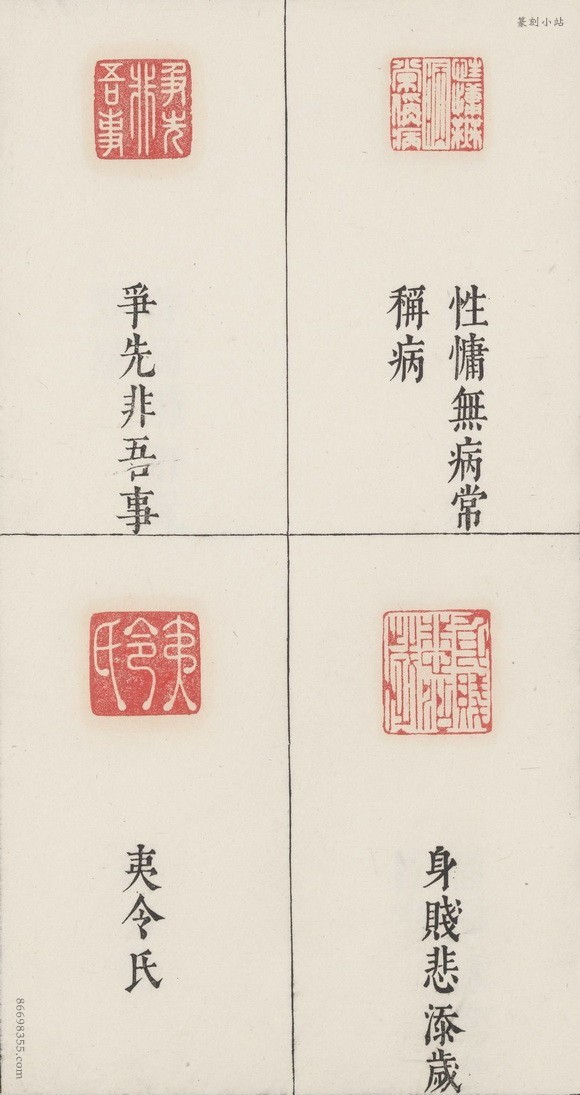 篆刻小站
性慵無病常
稱病
爭先非吾事
身賤悲添歲
夷令氏
86698355.com